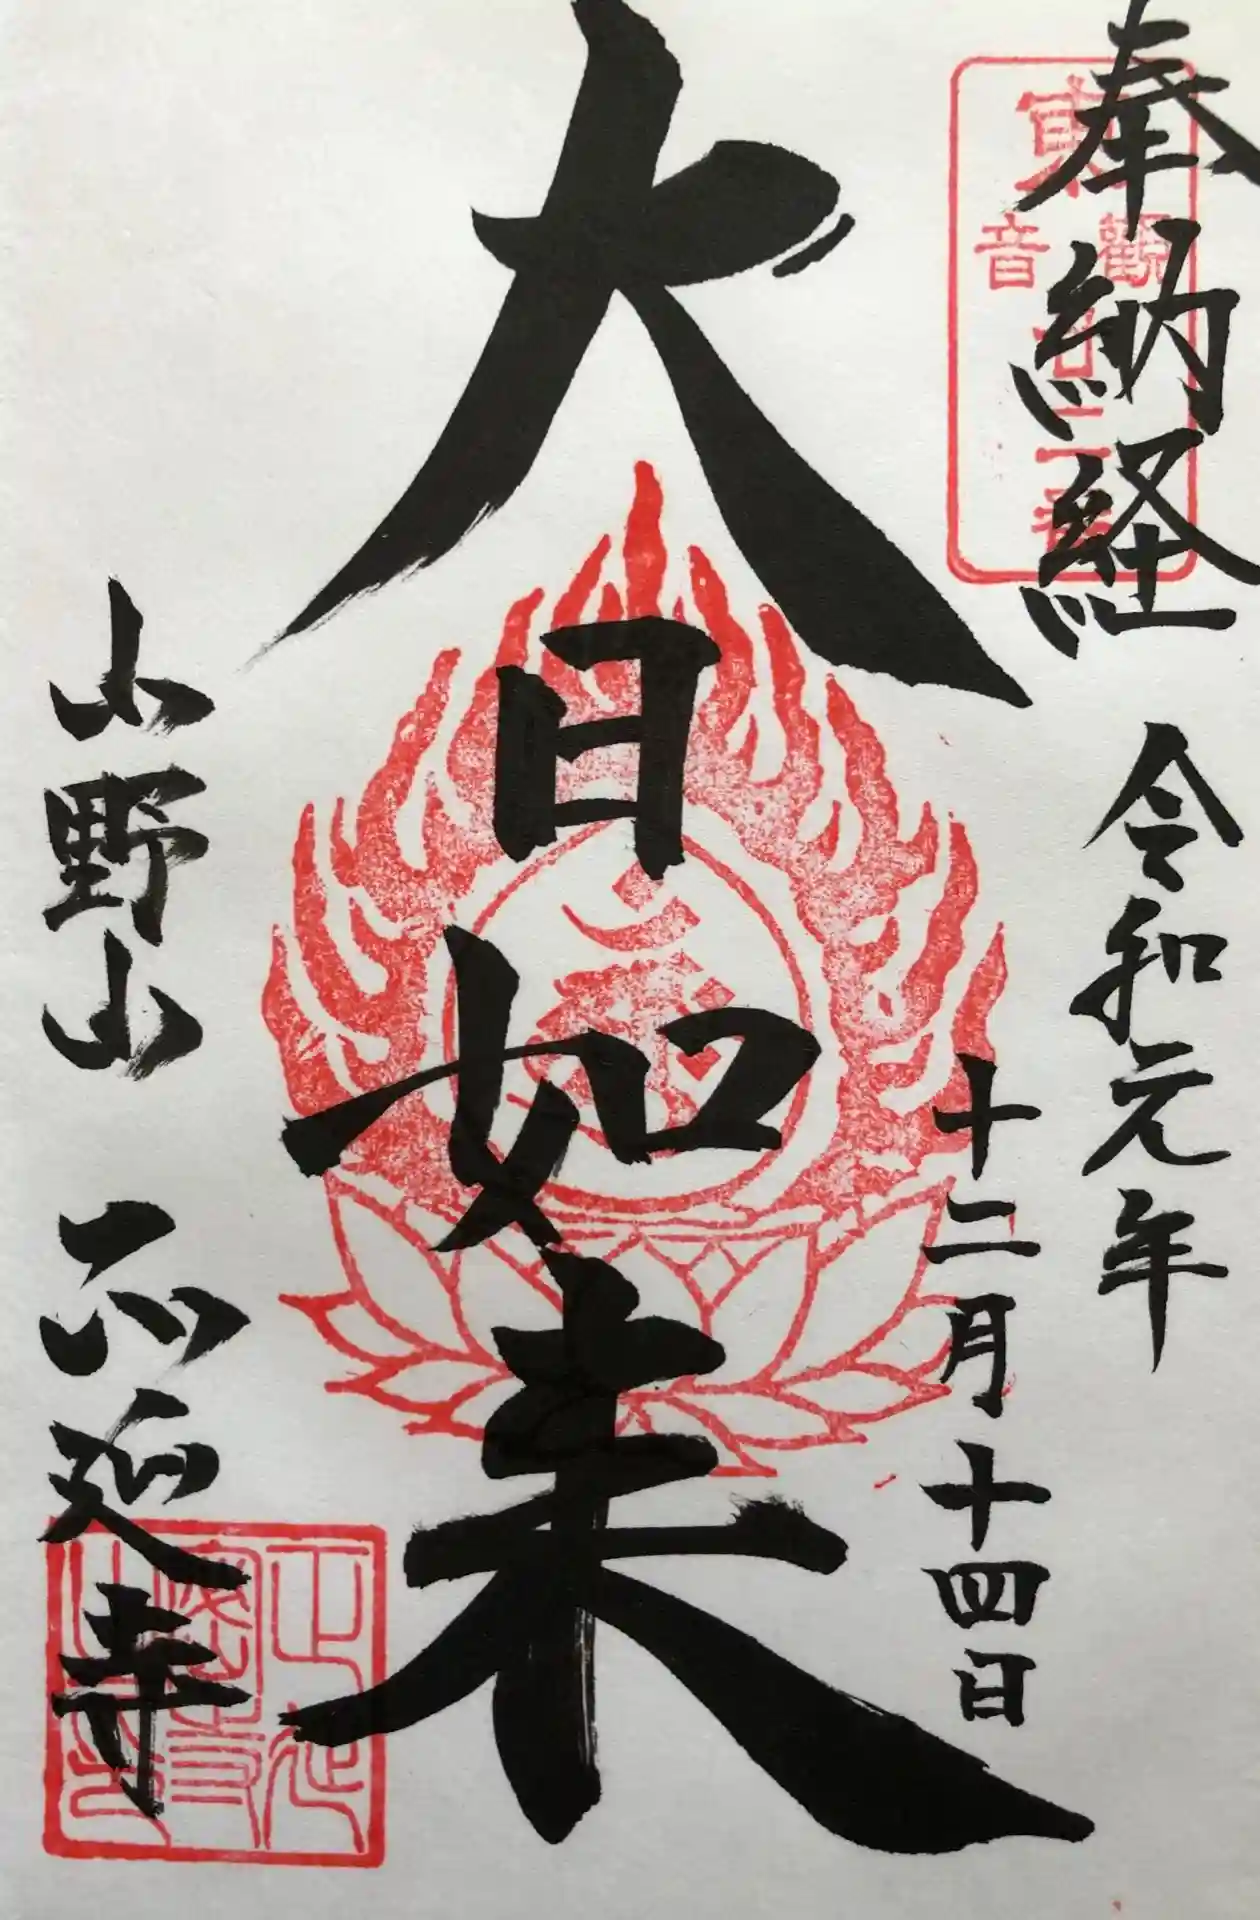 奉納経
東
観音
令和元年
十二月十四日
大日如来
小野山
正延寺